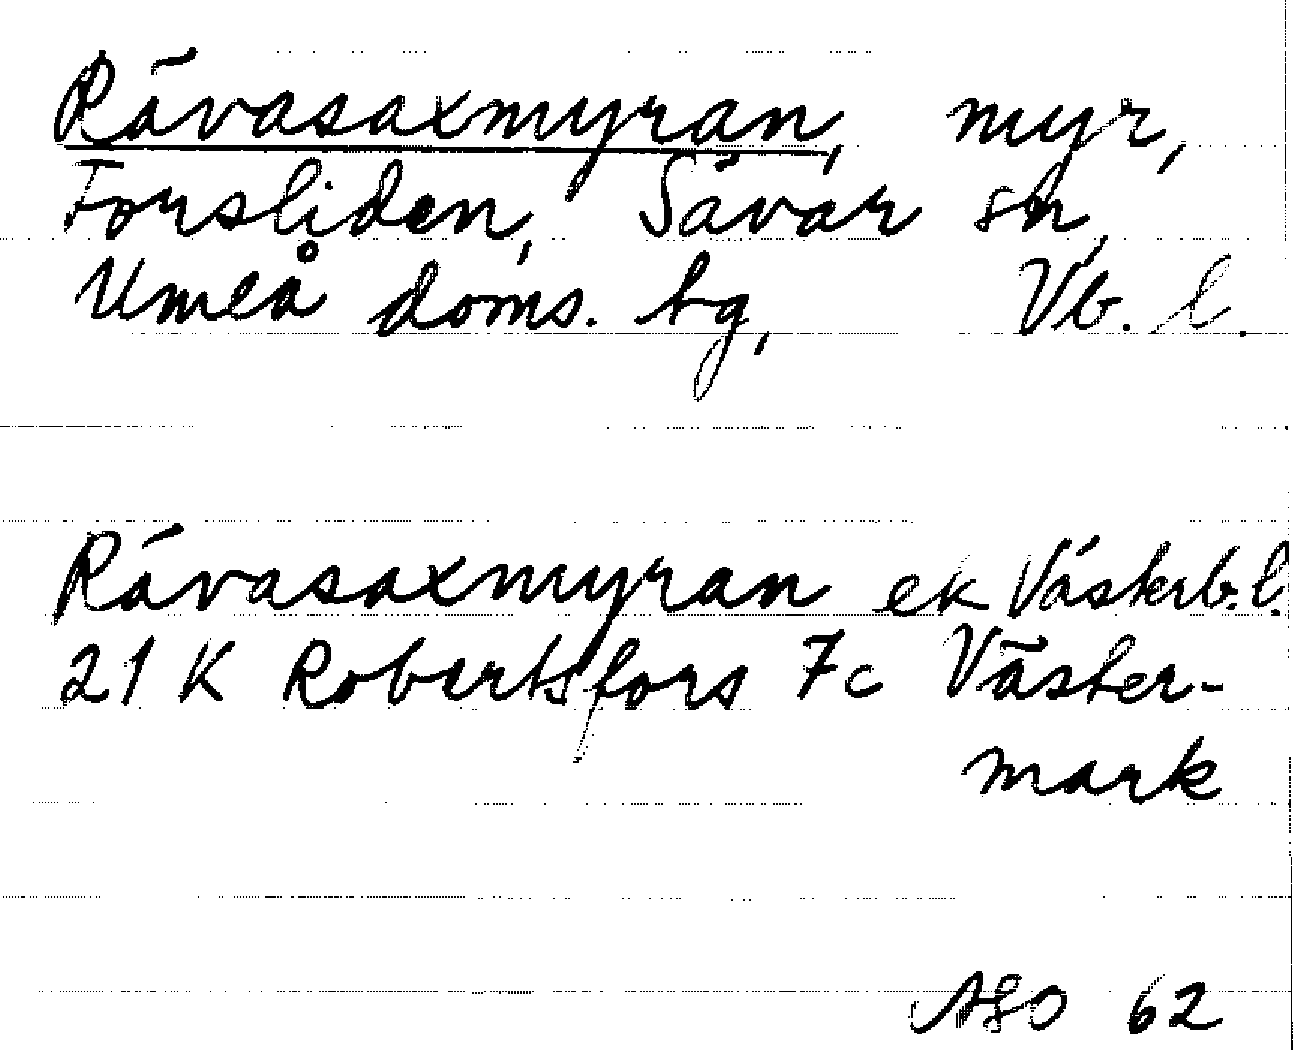 Rävasaxmyran, myr,
Forsliden, Sävar sn,
Umeå doms. tg, Vb. l.
Rävasaxmyran ek Västerb. l.
21 K Robertsfors 7c Väster-
mark
ASO 62